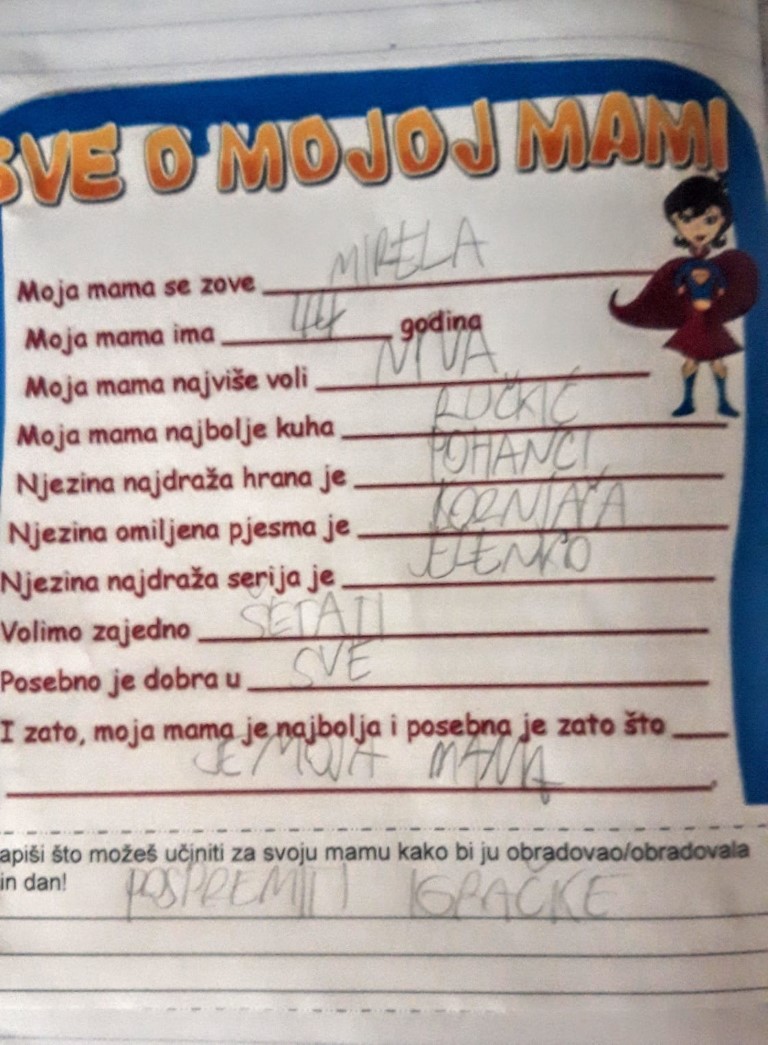 SVE O MOJOJ MAMI
Moja mama se zove MIRELA
Moja mama ima 44 godina
Moja mama najviše voli NIVA
Moja mama najbolje kuha RUČKIĆ
Njezina najdraža hrana je POHANCI
Njezina omiljena pjesma je KORNJAČA
Njezina najdraža serija je JELENKO
Volimo zajedno ŠETATI
Posebno je dobra u SVE
I zato, moja mama je najbolja i posebna je zato što
JE MOJA MAMA
apiši što možeš učiniti za svoju mamu kako bi ju obradovao/obradovala
in dan!
POSPREMITI IGRAČKE